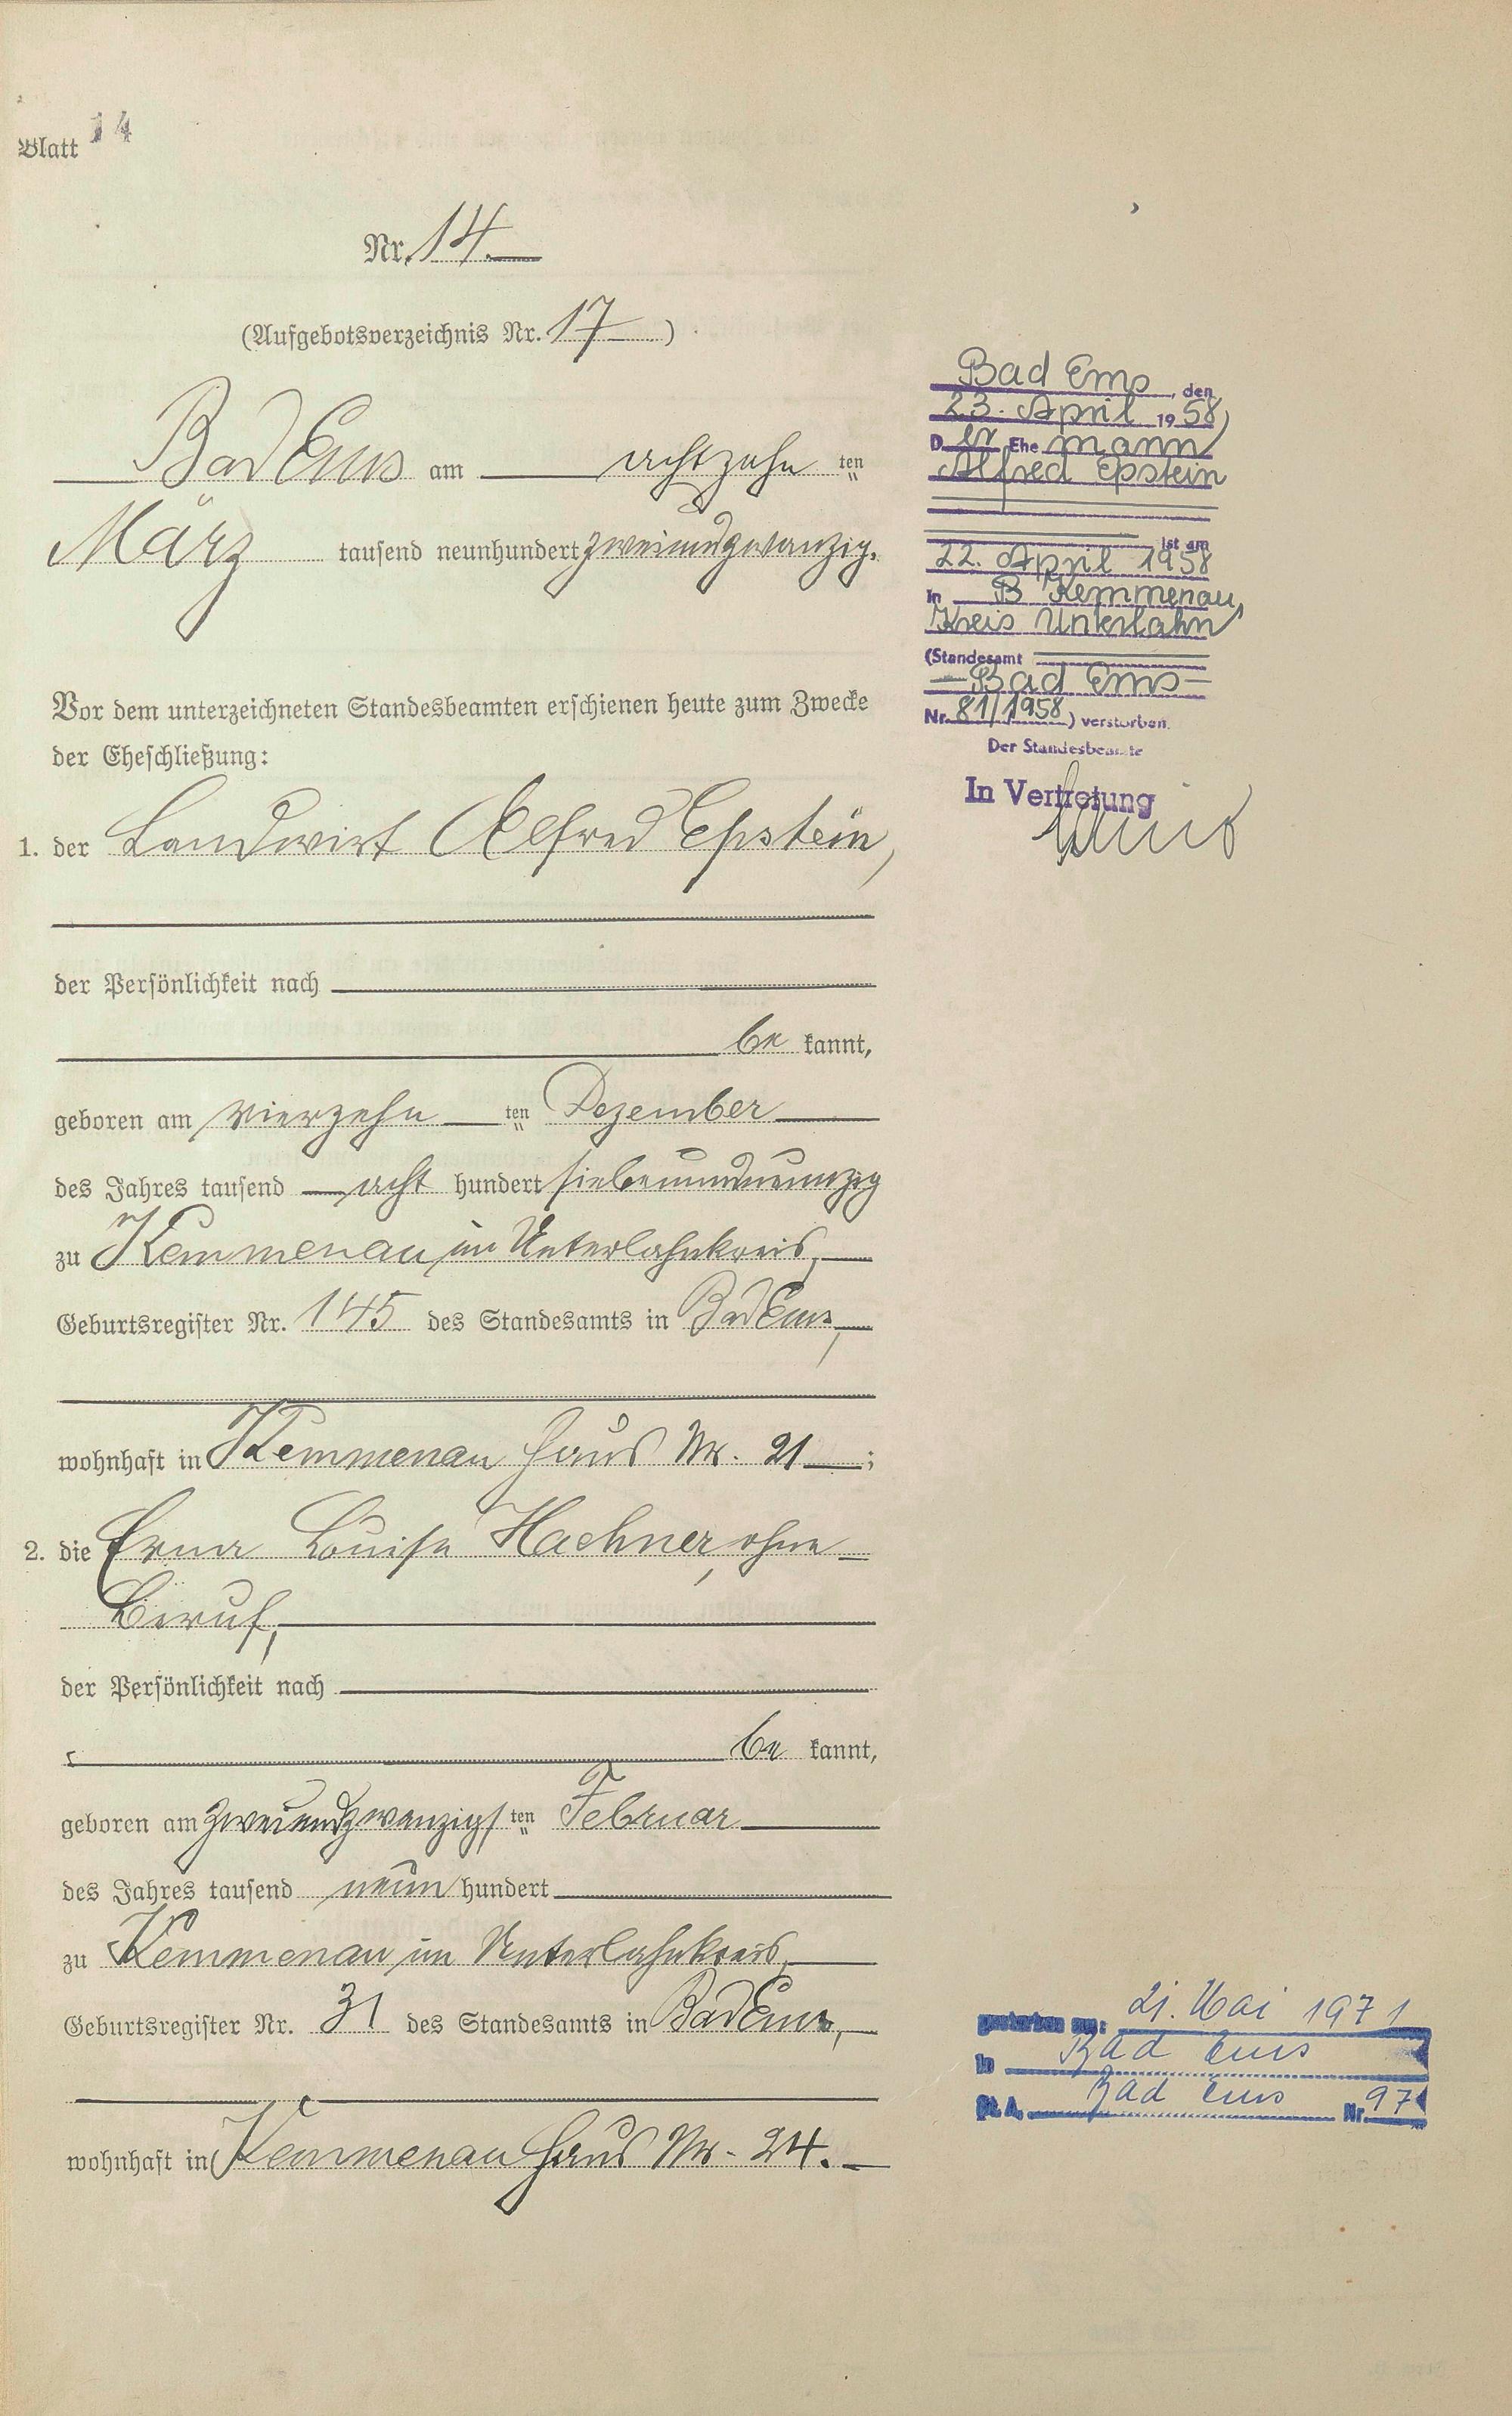 Blatt 14
Nr. 14.
(Aufgebotsverzeichnis Nr. 17)
Bad Ems am achtzehn ten
März tausend neunhundert zweiundzwanzig.
Vor dem unterzeichneten Standesbeamten erschienen heute zum Zwecke
der Eheschließung:
1. der Landwirt Alfred Epstein,
der Persönlichkeit nach
be kannt,
geboren am vierzehn ten Dezember
des Jahres tausend acht hundert siebenundneunzig
zu Kemmenau im Unterlahnkreis,
Geburtsregister Nr. 145 des Standesamts in Bad Ems,
wohnhaft in Kemmenau Haus Nr. 21 ;
2. die Erna Louise Hachner, ohne
Beruf,
der Persönlichkeit nach
be kannt,
geboren am zweiundzwanzigs ten Februar
des Jahres tausend neun hundert
zu Kemmenau im Unterlahnkreis,
Geburtsregister Nr. 31 des Standesamts in Bad Ems,
wohnhaft in Kemmenau Haus Nr. 24.
Bad Ems, den
23. April 1958
Der Ehemann
Alfred Epstein
ist am
22. April 1958
in B Kemmenau,
Kreis Unterlahn
(Standesamt
Bad Ems
Nr. 81/1958) verstorben.
Der Standesbeamte
In Vertretung
gestorben am: 21. Mai 1971
in Bad Ems
St. A. Bad Ems Nr. 97